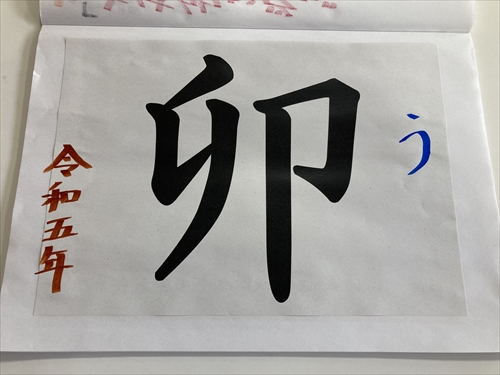 う
卯
令和五年